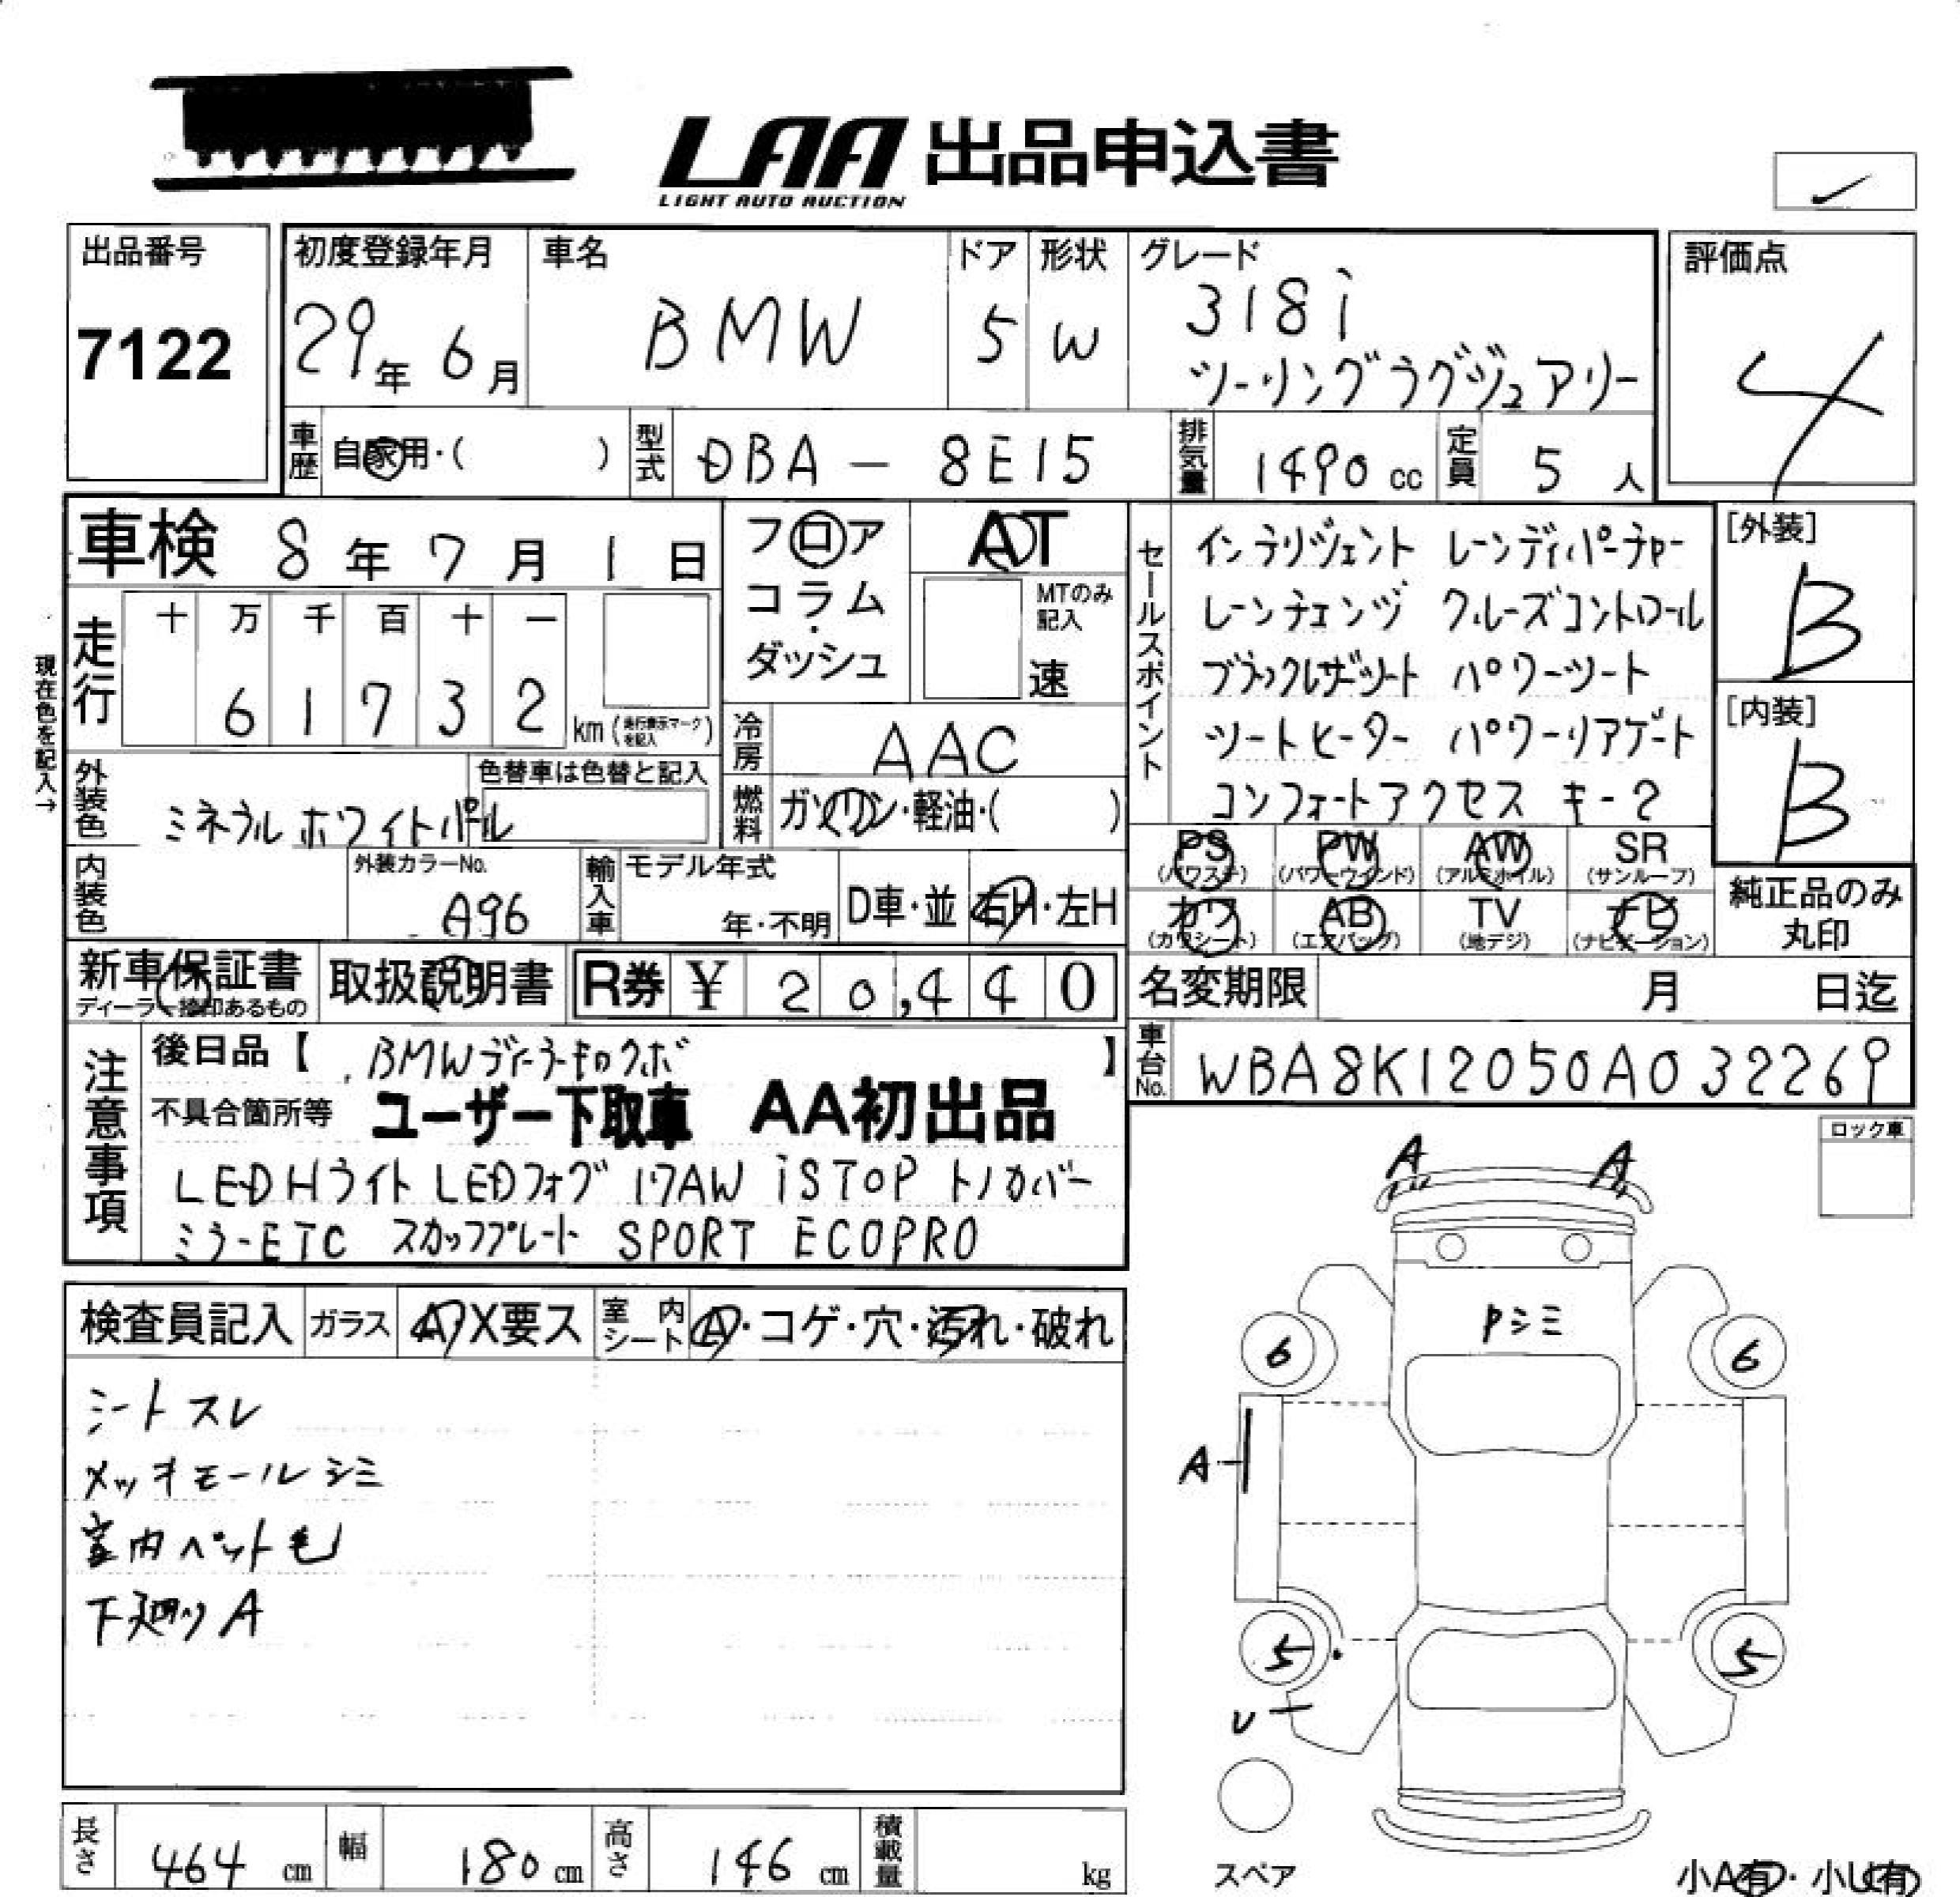 LAA 出品申込書
LIGHT AUTO AUCTION
出品番号
7122
初度登録年月
29年 6月
車名
BMW
ドア
5
形状
W
グレード
318i
ツーリングラグジュアリー
評価点
4
車歴 自家用・( )
型式 DBA - 8E15
排気量 1490 cc
定員 5 人
車検 8年 7月 1日
フロア
コラム
・
ダッシュ
AT
MTのみ
記入
速
セールスポイント
インテリジェント レーンディパーチャー
レーンチェンジ クルーズコントロール
ブラックレザーシート パワーシート
シートヒーター パワーリアゲート
コンフォートアクセス キー2
[外装]
B
[内装]
B
現在色を記入→
走行
十 万 千 百 十 一
6 1 7 3 2 km (走行表示マークを記入)
冷房 AAC
外装色 ミネラルホワイトパール
色替車は色替と記入
燃料 ガソリン・軽油・( )
内装色
外装カラーNo.
A96
輸入車 モデル年式
年・不明
D車・並
右H・左H
PS
(パワステ)
PW
(パワーウインド)
AW
(アルミホイル)
SR
(サンルーフ)
カワ
(カワシート)
AB
(エアバッグ)
TV
(地デジ)
ナビ
(ナビゲーション)
純正品のみ
丸印
新車保証書
ディーラー捺印あるもの
取扱説明書
R券 ¥ 20,440
名変期限 月 日迄
車台No. WBA8K12050A032269
注意事項
後日品【 BMWディーラーキロクボ 】
不具合箇所等 ユーザー下取車 AA初出品
LEDHライト LEDフォグ 17AW iSTOP トノカバー
ミラーETC スカッフプレート SPORT ECOPRO
ロック車
検査員記入
ガラス A・X要ス
室内シート A・コゲ・穴・汚れ・破れ
シートスレ
メッキモールシミ
室内ペット毛
下廻りA
A
A
Pシミ
6
6
A
5
5
U
スペア
長さ 464 cm
幅 180 cm
高さ 146 cm
積載量 kg
小A有・小U有